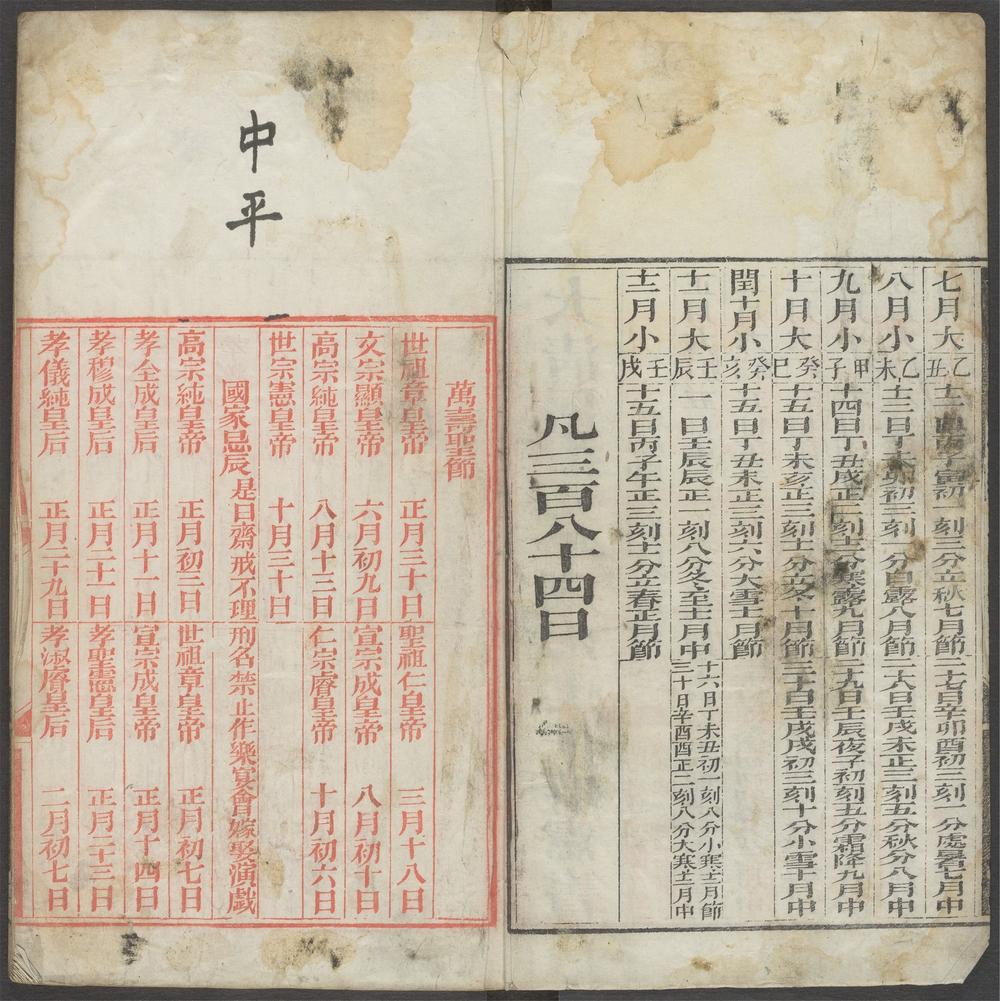 七月大 乙丑 十二日丙子寅初一刻三分立秋七月節二十七日辛卯酉初三刻一分處暑七月中
八月小 乙未 十三日丁未卯初二刻一分白露八月節二十八日壬戌未正三刻五分秋分八月中
九月小 甲子 十四日丁丑戌正二刻分寒露九月節二十九日壬辰夜子初刻五分霜降九月中
十月大 癸巳 十五日丁未亥正三刻十一分立冬十月節三十日壬戌戌初三刻十分小雪十月中
閏十月小 癸亥 十五日丁丑未正三刻六分大雪十一月節
十一月大 壬辰 一日壬辰辰正一刻八分冬至十一月中
十六日丁未丑初一刻八分小寒十二月節
三十日辛酉酉正二刻八分大寒十二月中
十二月小 壬戌 十五日丙子午正三刻十一分立春正月節
凡三百八十四日
中平
萬壽聖節
世祖章皇帝 正月三十日 聖祖仁皇帝 三月十八日
文宗顯皇帝 六月初九日 宣宗成皇帝 八月初十日
高宗純皇帝 八月十三日 仁宗睿皇帝 十月初六日
世宗憲皇帝 十月三十日
國家忌辰 是日齋戒不理刑名禁止作樂宴會嫁娶演戲
高宗純皇帝 正月初三日 世祖章皇帝 正月初七日
孝全成皇后 正月十一日 宣宗成皇帝 正月十四日
孝穆成皇后 正月二十一日 孝聖憲皇后 正月二十三日
孝儀純皇后 正月二十九日 孝淑睿皇后 二月初七日